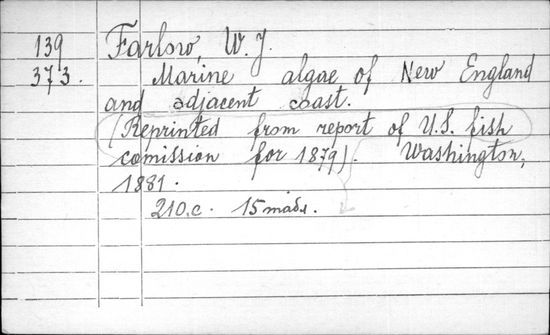 139 Farlow, W. J.
373. Marine algae of New England
and adjacent coast.
(Reprinted from report of U.S. fish
comission for 1879). Washington,
1881.
210.c. 15